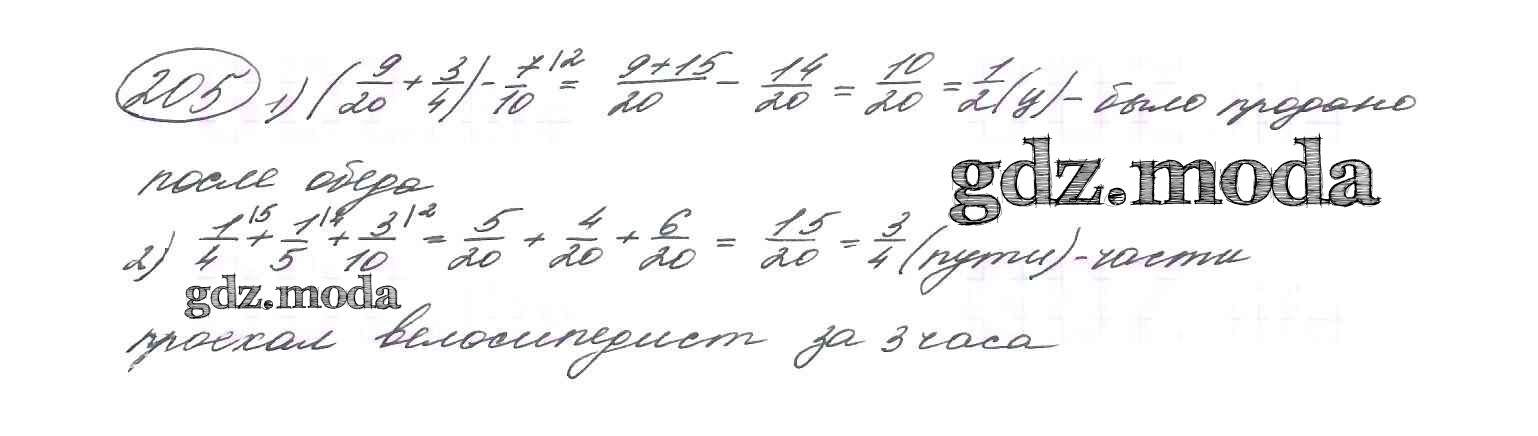 205 1) (9/20 + 3/4) - 7/10 |2 = 9+15/20 - 14/20 = 10/20 = 1/2 (ц) - было продано
gdz.moda
после обеда
2) 1/4 |5 + 1/5 |4 + 3/10 |2 = 5/20 + 4/20 + 6/20 = 15/20 = 3/4 (пути) - части
gdz.moda
проехал велосипедист за 3 часа